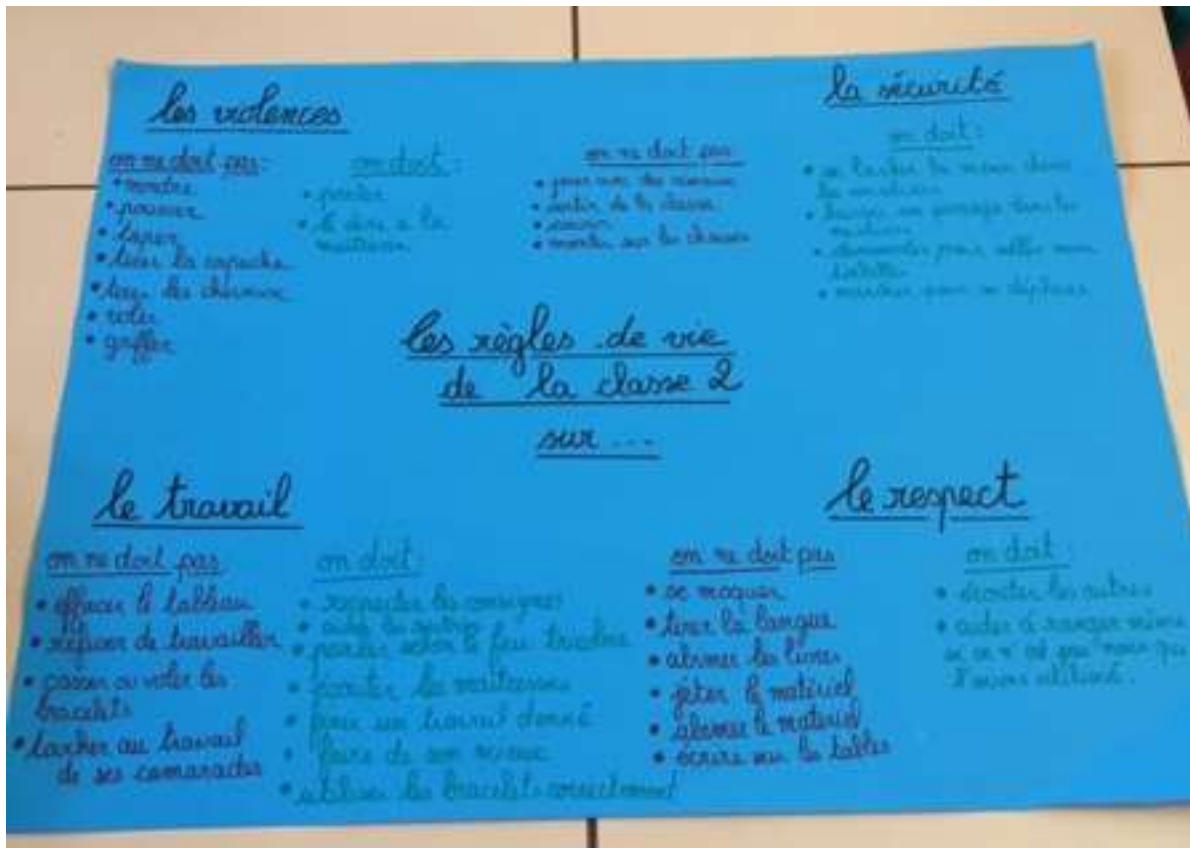 les violences
on ne doit pas:
• mordre
• pousser
• taper
• tirer la capuche
• tirer les cheveux
• voler
• griffer
on doit :
• parler
• le dire à la
maîtresse
la sécurité
on ne doit pas
• jouer avec des ciseaux
• sortir de la classe
• courir
• monter sur les chaises
on doit :
• se la main dans
les escaliers
• un passage dans les
• demander pour aller aux
toilettes
• marcher pour se déplacer
les règles de vie
de la classe 2
sur ...
le travail
on ne doit pas
• effacer le tableau
• refuser de travailler
• casser ou voler les
bracelets
• toucher au travail
de ses camarades
on doit :
• respecter les consignes
• aider les autres
• parler selon le feu tricolore
• écouter les maîtresses
• un travail donné
• faire de son mieux
• utiliser les bracelets correctement
le respect
on ne doit pas
• se moquer
• tirer la langue
• abimer les livres
• jeter le matériel
• abimer le matériel
• écrire sur les tables
on doit :
• écouter les autres
• aider à ranger même
si ce n'est pas nous qui
l'avons utilisé.